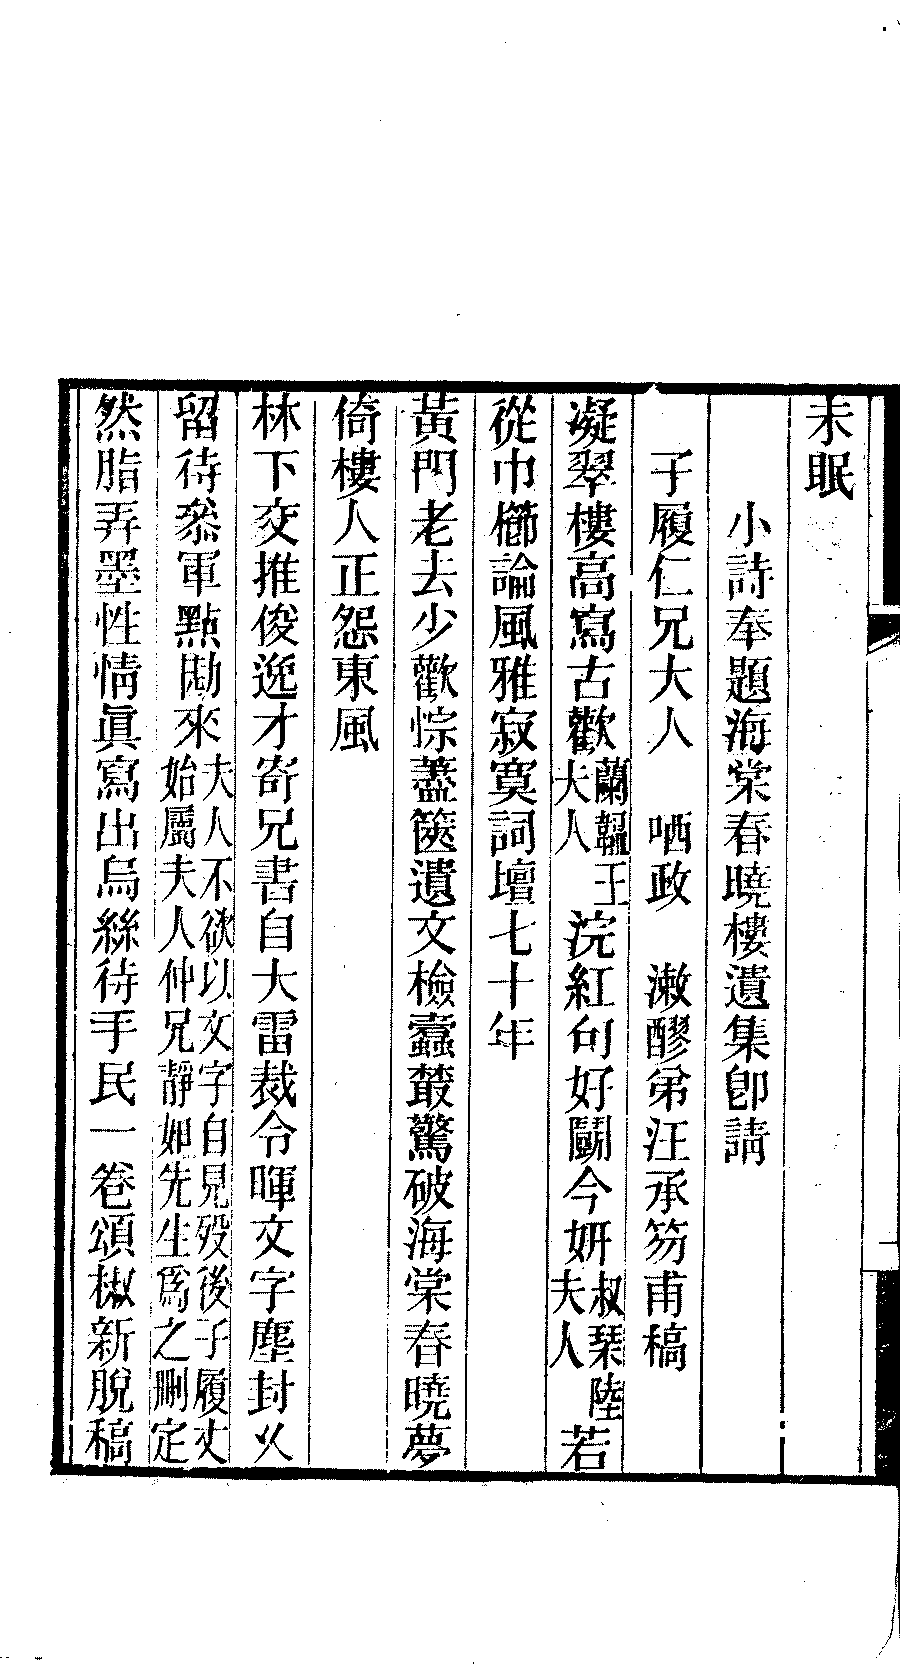 未眠
小詩奉題海棠春曉樓遺集卽請
子履仁兄大人　哂政　漱醪弟汪承笏甫稿
凝翠樓高寫古歡蘭韞王夫人浣紅句好鬭今妍叔琹陸夫人若
從巾櫛論風雅寂寞詞壇七十年
黃門老去少歡悰藎篋遺文檢蠹叢驚破海棠春曉夢
倚樓人正怨東風
林下交推俊逸才寄兄書自大雷裁令暉文字塵封久
留待叅軍點勘來夫人不欲以文字自見歿後子履丈始屬夫人仲兄靜如先生爲之刪定
然脂弄墨性情眞寫出烏絲待手民一卷頌椒新脫稿